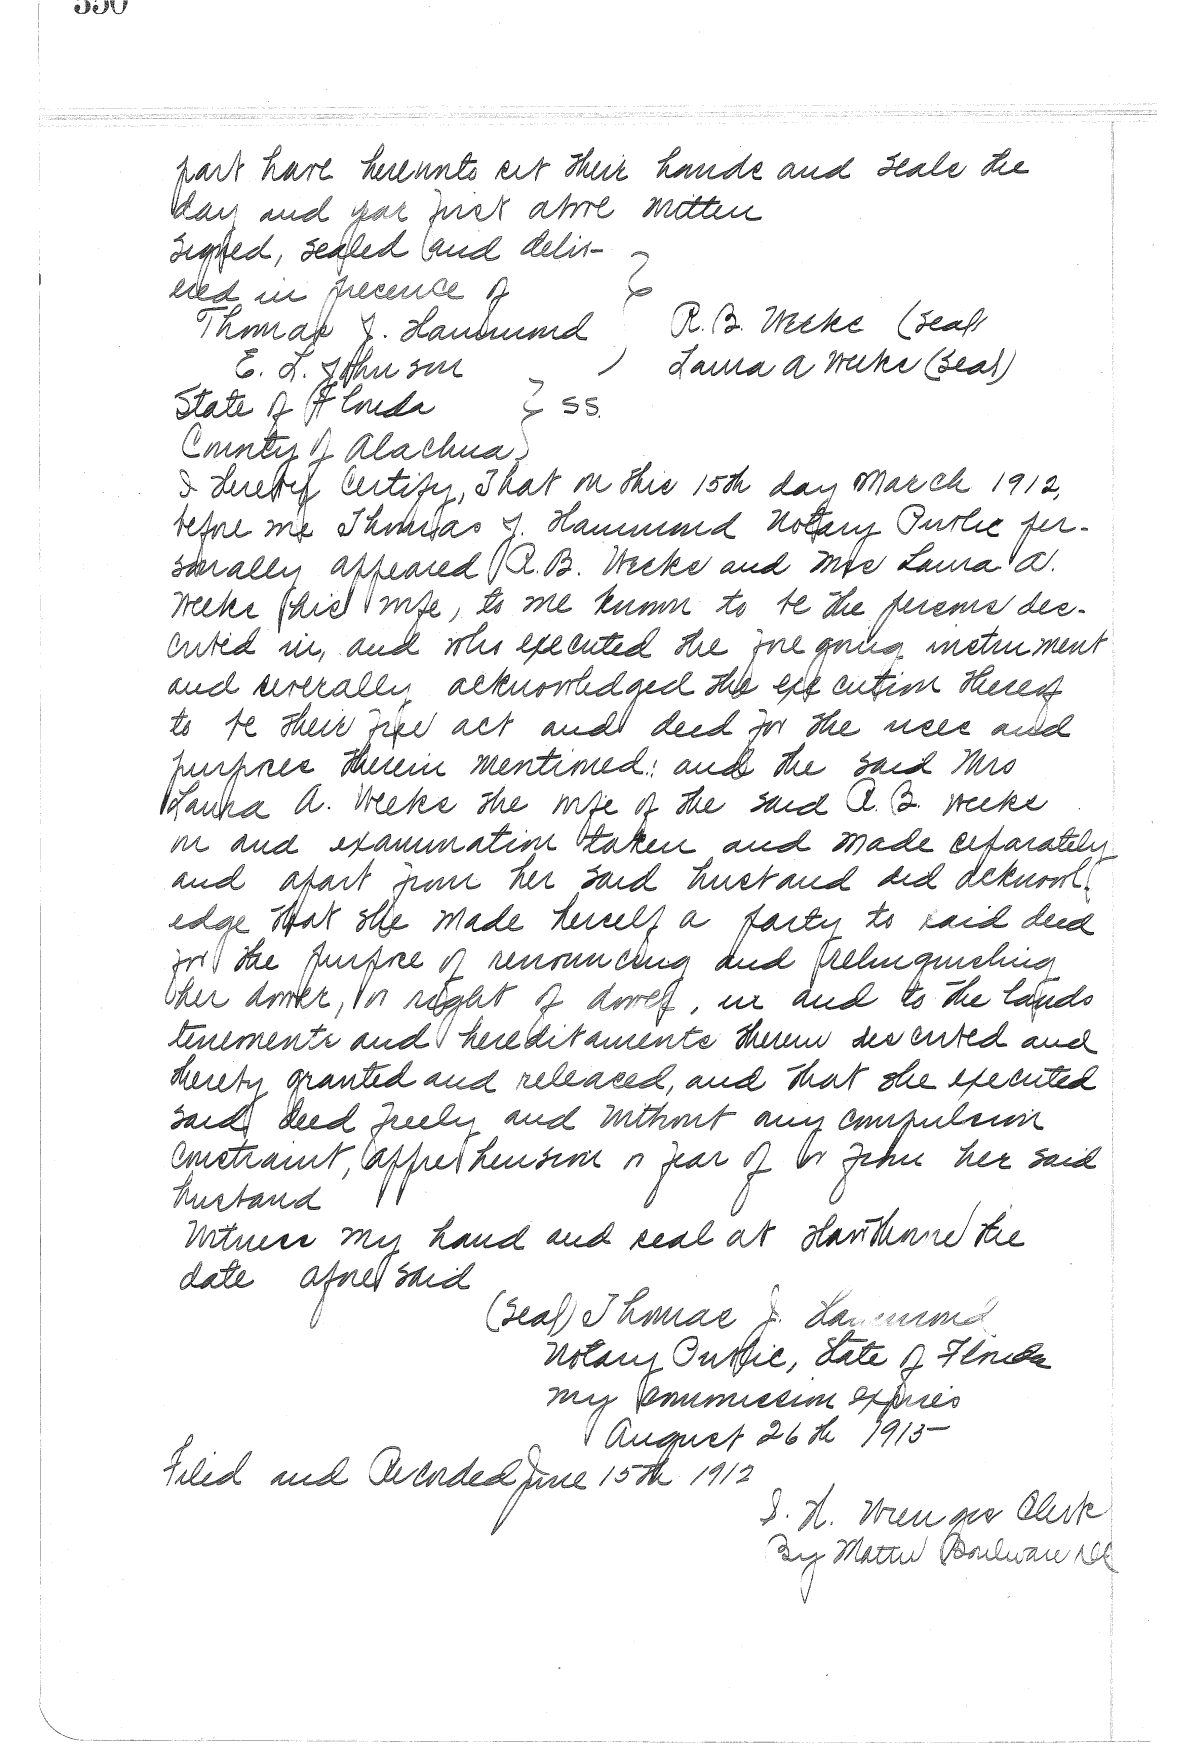 part have hereunto set their hands and seals the
day and year first above written
Signed, sealed and deliv-
ered in presence of
Thomas J. Hammond R. B. Weeks (Seal)
E. L. Johnson Laura A Weeks (Seal)
State of Florida } SS.
County of Alachua }
I hereby Certify, That on this 15th day March 1912,
before me Thomas J. Hammond Notary Public per-
sonally appeared R. B. Weeks and Mrs Laura A.
Weeks his wife, to me known to be the persons des-
cribed in, and who executed the foregoing instrument
and severally acknowledged the execution thereof
to be their free act and deed for the uses and
purposes therein mentioned; and the said Mrs
Laura A. Weeks the wife of the said R. B. Weeks
on and examination taken and made separately
and apart from her said husband did acknowl-
edge that she made herself a party to said deed
for the purpose of renouncing and relinquishing
her dower, or right of dower, in and to the lands
tenements and hereditaments therein described and
thereby granted and released, and that she executed
said deed freely and without any compulsion
constraint, apprehension or fear of or from her said
husband
Witness my hand and seal at Hawthorne the
date aforesaid
(Seal) Thomas J. Hammond
Notary Public, State of Florida
my commission expires
August 26th 1915
Filed and Recorded June 15th 1912
S. H. Wienges Clerk
By Mattie Boulware DC